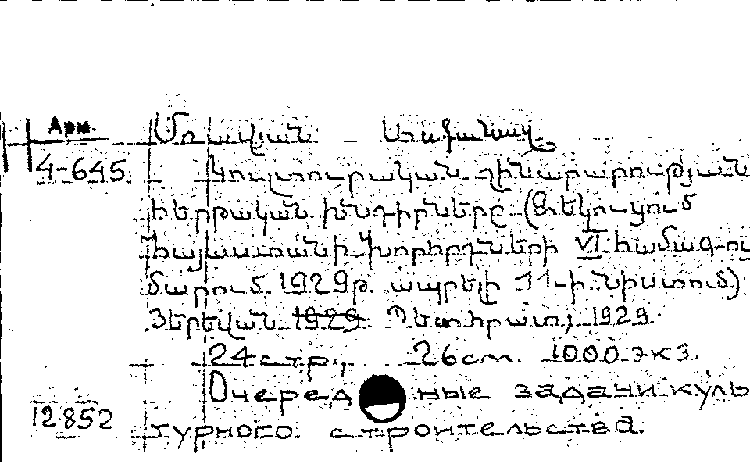 Арм.
4-645
Մռավյան Ասքանազ
Կուլտուրական շինարարության
հերթական խնդիրները (Զեկուցում
Հայաստանի Խորհրդների VI համագու
մարում 1929թ. ապրելի 11-ի նիստում)
Յերեվան 1929 Պետհրատ, 1929
24 стр., 26см. 1000 экз.
Очередные задачи куль
12852
турного строительства.